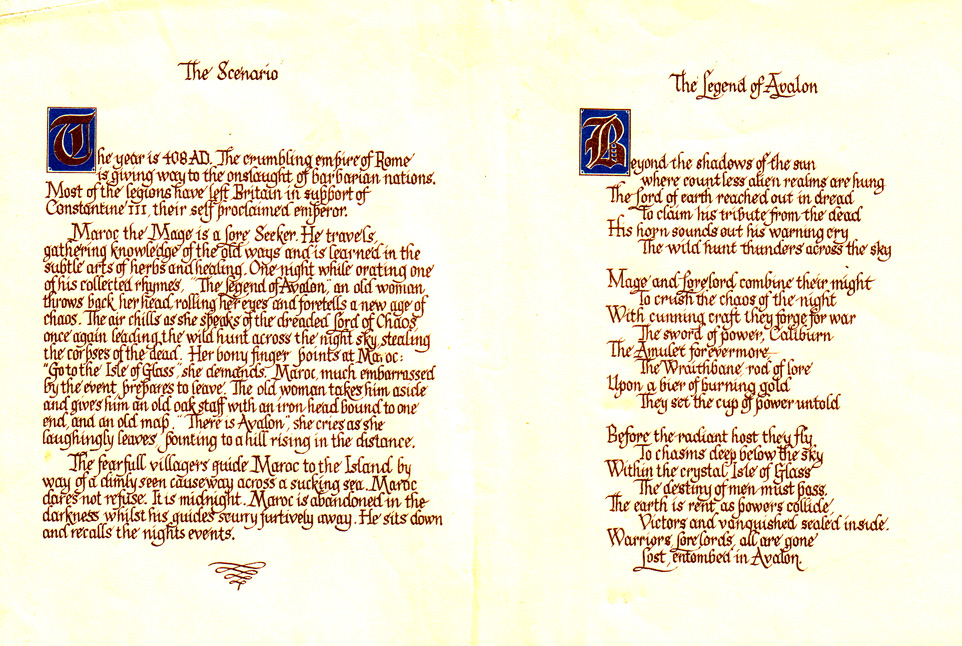 The Scenario
The year is 408 AD. The crumbling empire of Rome
is giving way to the onslaught of barbarian nations.
Most of the legions have left Britain in support of
Constantine III, their self proclaimed emperor.
Maroc the Mage is a Lore Seeker. He travels,
gathering knowledge of the old ways and is learned in the
subtle arts of herbs and healing. One night while orating one
of his collected rhymes, "The Legend of Avalon," an old woman
throws back her head, rolling her eyes and foretells a new age of
chaos. The air chills as she speaks of the dreaded Lord of Chaos
once again leading the wild hunt across the night sky, stealing
the corpses of the dead. Her bony finger points at Maroc:
"Go to the Isle of Glass", she demands. Maroc, much embarrassed
by the event, prepares to leave. The old woman takes him aside
and gives him an old oak staff with an iron head bound to one
end, and an old map. "There is Avalon", she cries as she
laughingly leaves, pointing to a hill rising in the distance.
The fearfull villagers guide Maroc to the Island by
way of a dimly seen causeway across a sucking sea. Maroc
dares not refuse. It is midnight. Maroc is abandoned in the
darkness whilst his guides scurry furtively away. He sits down
and recalls the nights events.
The Legend of Avalon
Beyond the shadows of the sun
where countless alien realms are hung
The Lord of earth reached out in dread
To claim his tribute from the dead
His horn sounds out his warning cry
The wild hunt thunders across the sky
Mage and Lorelord combine their might
To crush the chaos of the night
With cunning craft they forge for war
The sword of power, Caliburn
The Amulet forevermore
The Wraithbane rod of lore
Upon a bier of burning gold
They set the cup of power untold
Before the radiant host they fly
To chasms deep below the sky
Within the crystal Isle of Glass
The destiny of men must pass.
The earth is rent as powers collide,
Victors and vanquished sealed inside.
Warriors, Lorelords, all are gone
Lost, entombed in Avalon.